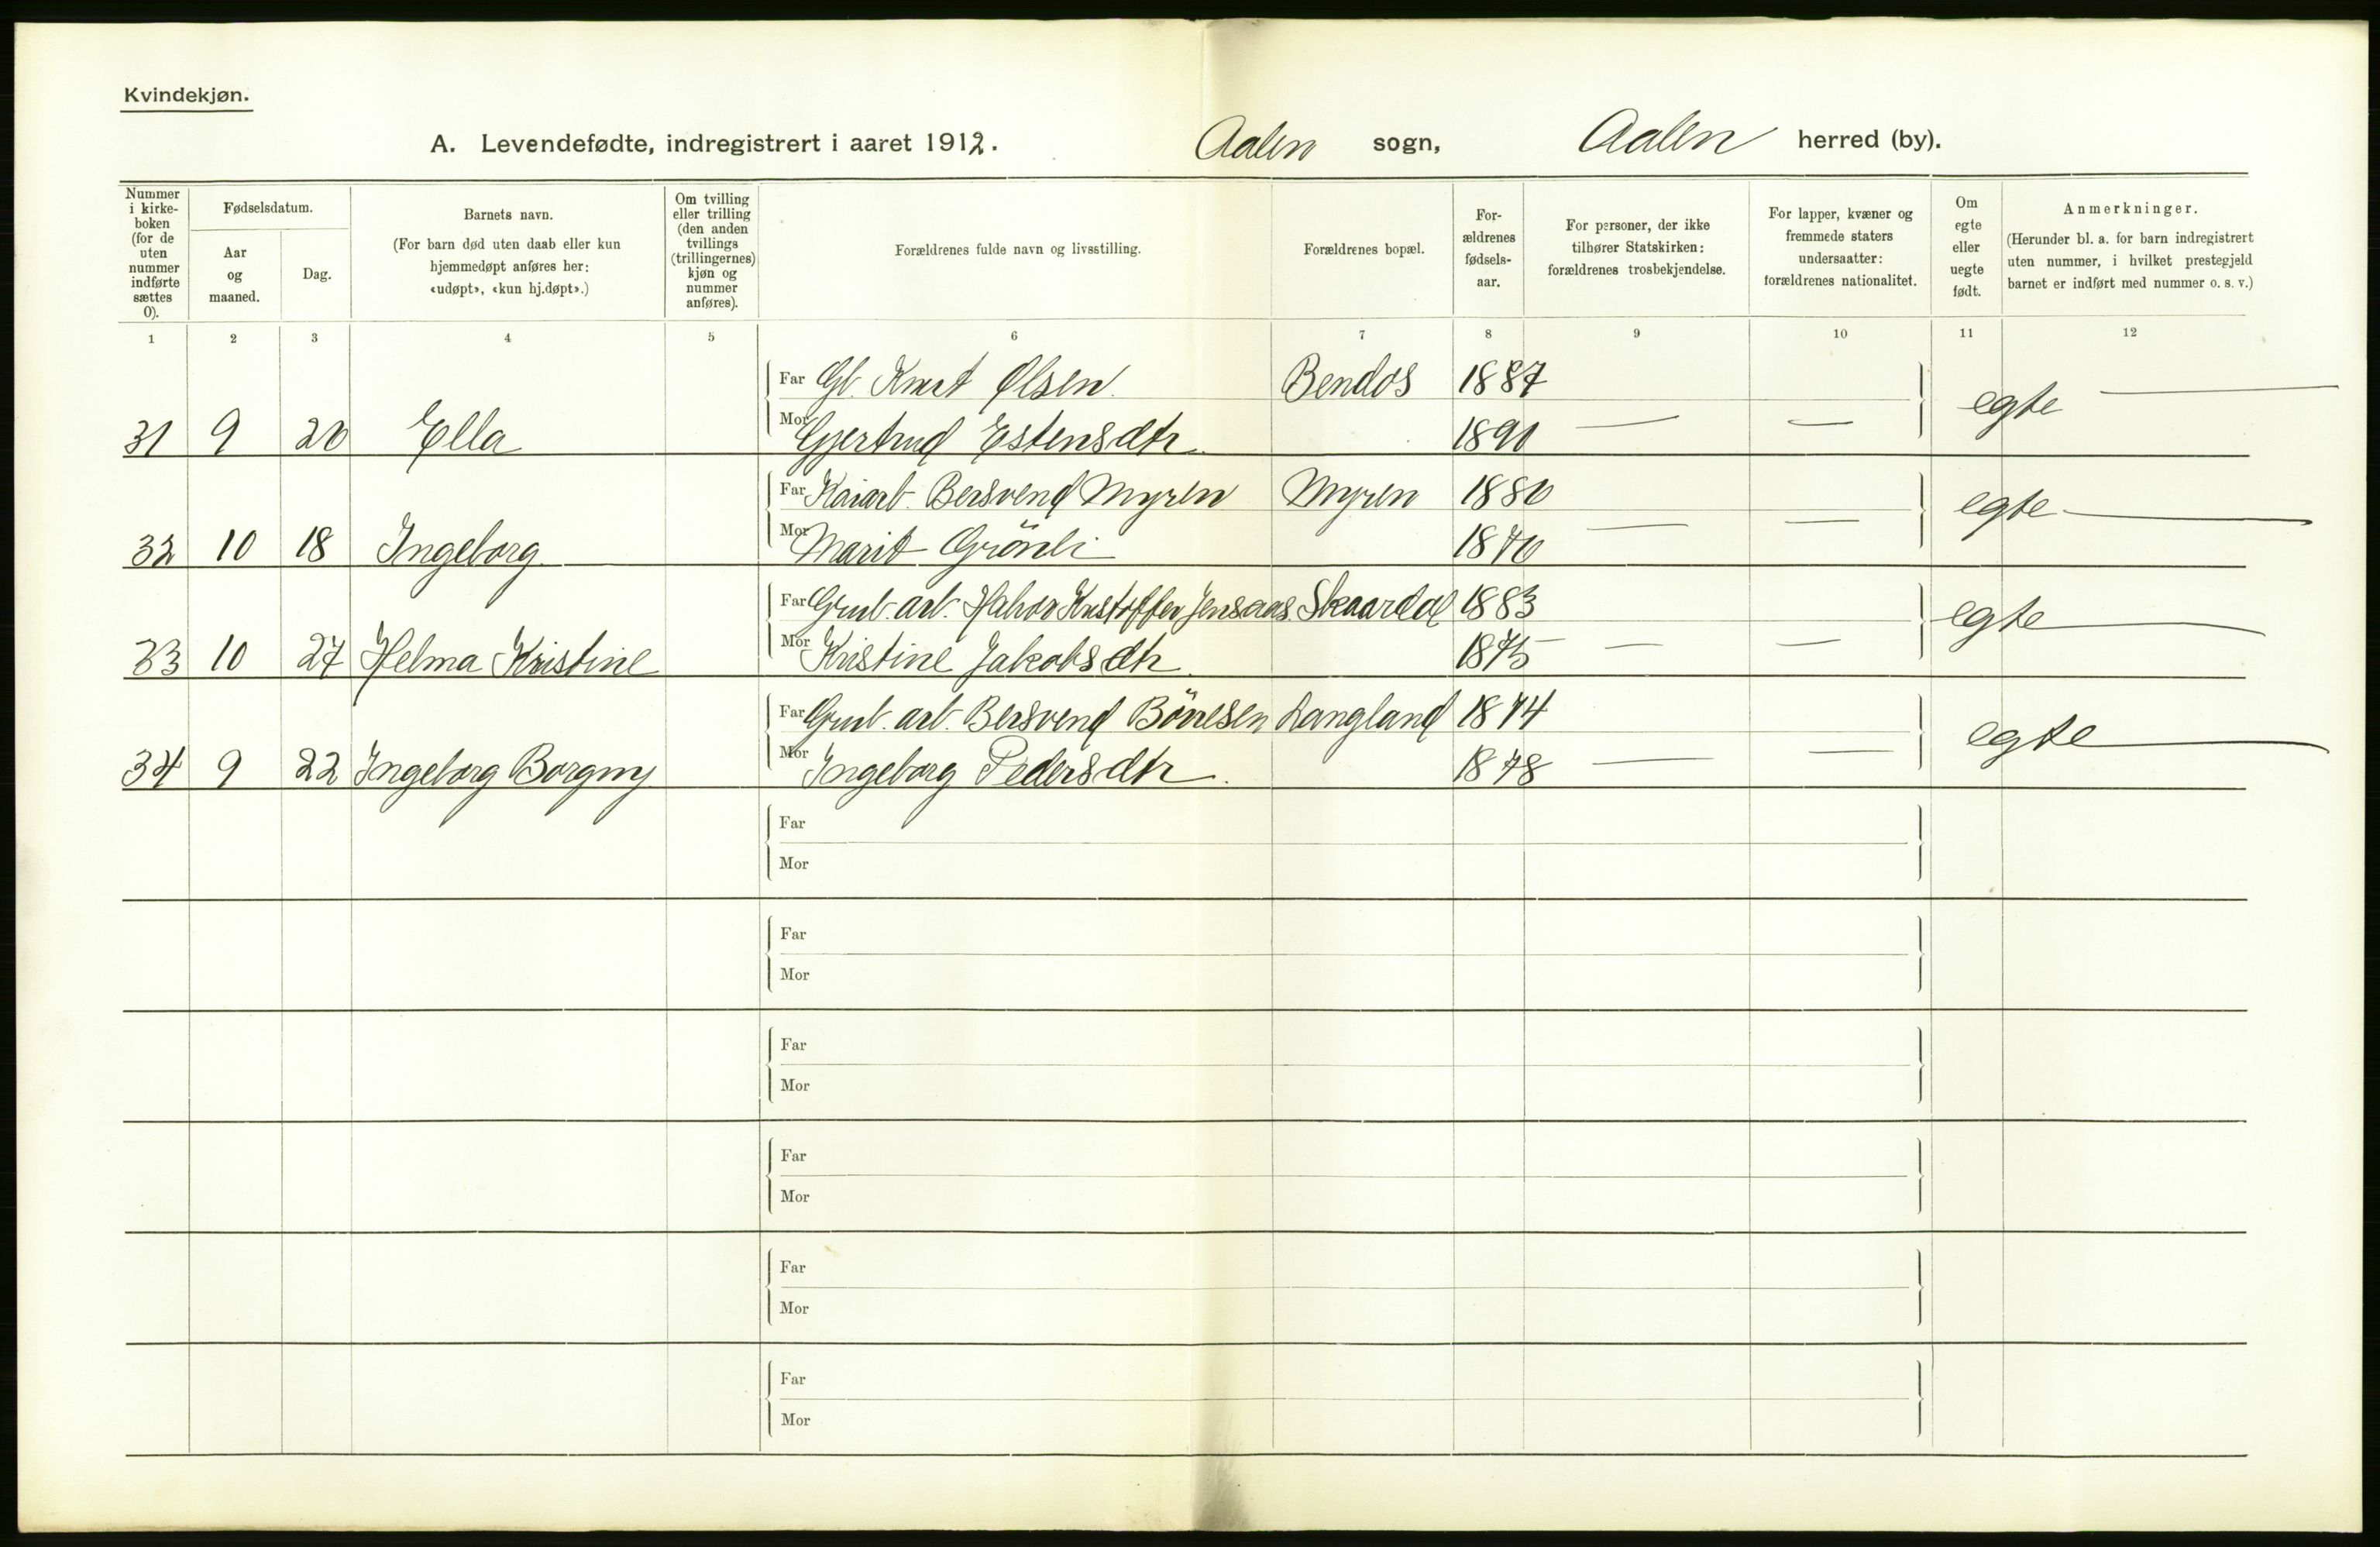 Kvindekjøn.
A. Levendefødte, indregistrert i aaret 1912. Aalen sogn, Aalen herred (by).
Nummer i kirke-boken (for de uten nummer indførte sættes 0). Fødselsdatum. Aar og maaned. Dag. Barnets navn. (For barn død uten daab eller kun hjemmedøpt anføres her: «udøpt», «kun hj.døpt».) Om tvilling eller trilling (den anden tvillings (trillingernes) kjøn og nummer anføres). Forældrenes fulde navn og livsstilling. Forældrenes bopæl. For-ældrenes fødsels-aar. For personer, der ikke tilhører Statskirken: forældrenes trosbekjendelse. For lapper, kvæner og fremmede staters undersaatter: forældrenes nationalitet. Om egte eller uegte født. Anmerkninger. (Herunder bl. a. for barn indregistrert uten nummer, i hvilket prestegjeld barnet er indført med nummer o. s. v.)
1 2 3 4 5 6 7 8 9 10 11 12
Far Gb. Knut Olsen. Bendos 1887
31 9 20 Ella Mor Gjertrud Estensdtr. 1890 — — egte —
Far Bersvend Myren Myren 1880
32 10 18 Ingeborg Mor Marit Grönli 1870 — — egte —
Far Grub. arb. Halvor Kristoffer Jensaas Skaardal 1883
33 10 27 Helma Kristine Mor Kristine Jakobsdtr. 1875 — — egte —
Far Grub. arb. Bersvend Börresen Langland 1874
34 9 22 Ingeborg Borgny Mor Ingeborg Pedersdtr. 1878 — — egte —
Far
Mor
Far
Mor
Far
Mor
Far
Mor
Far
Mor
Far
Mor